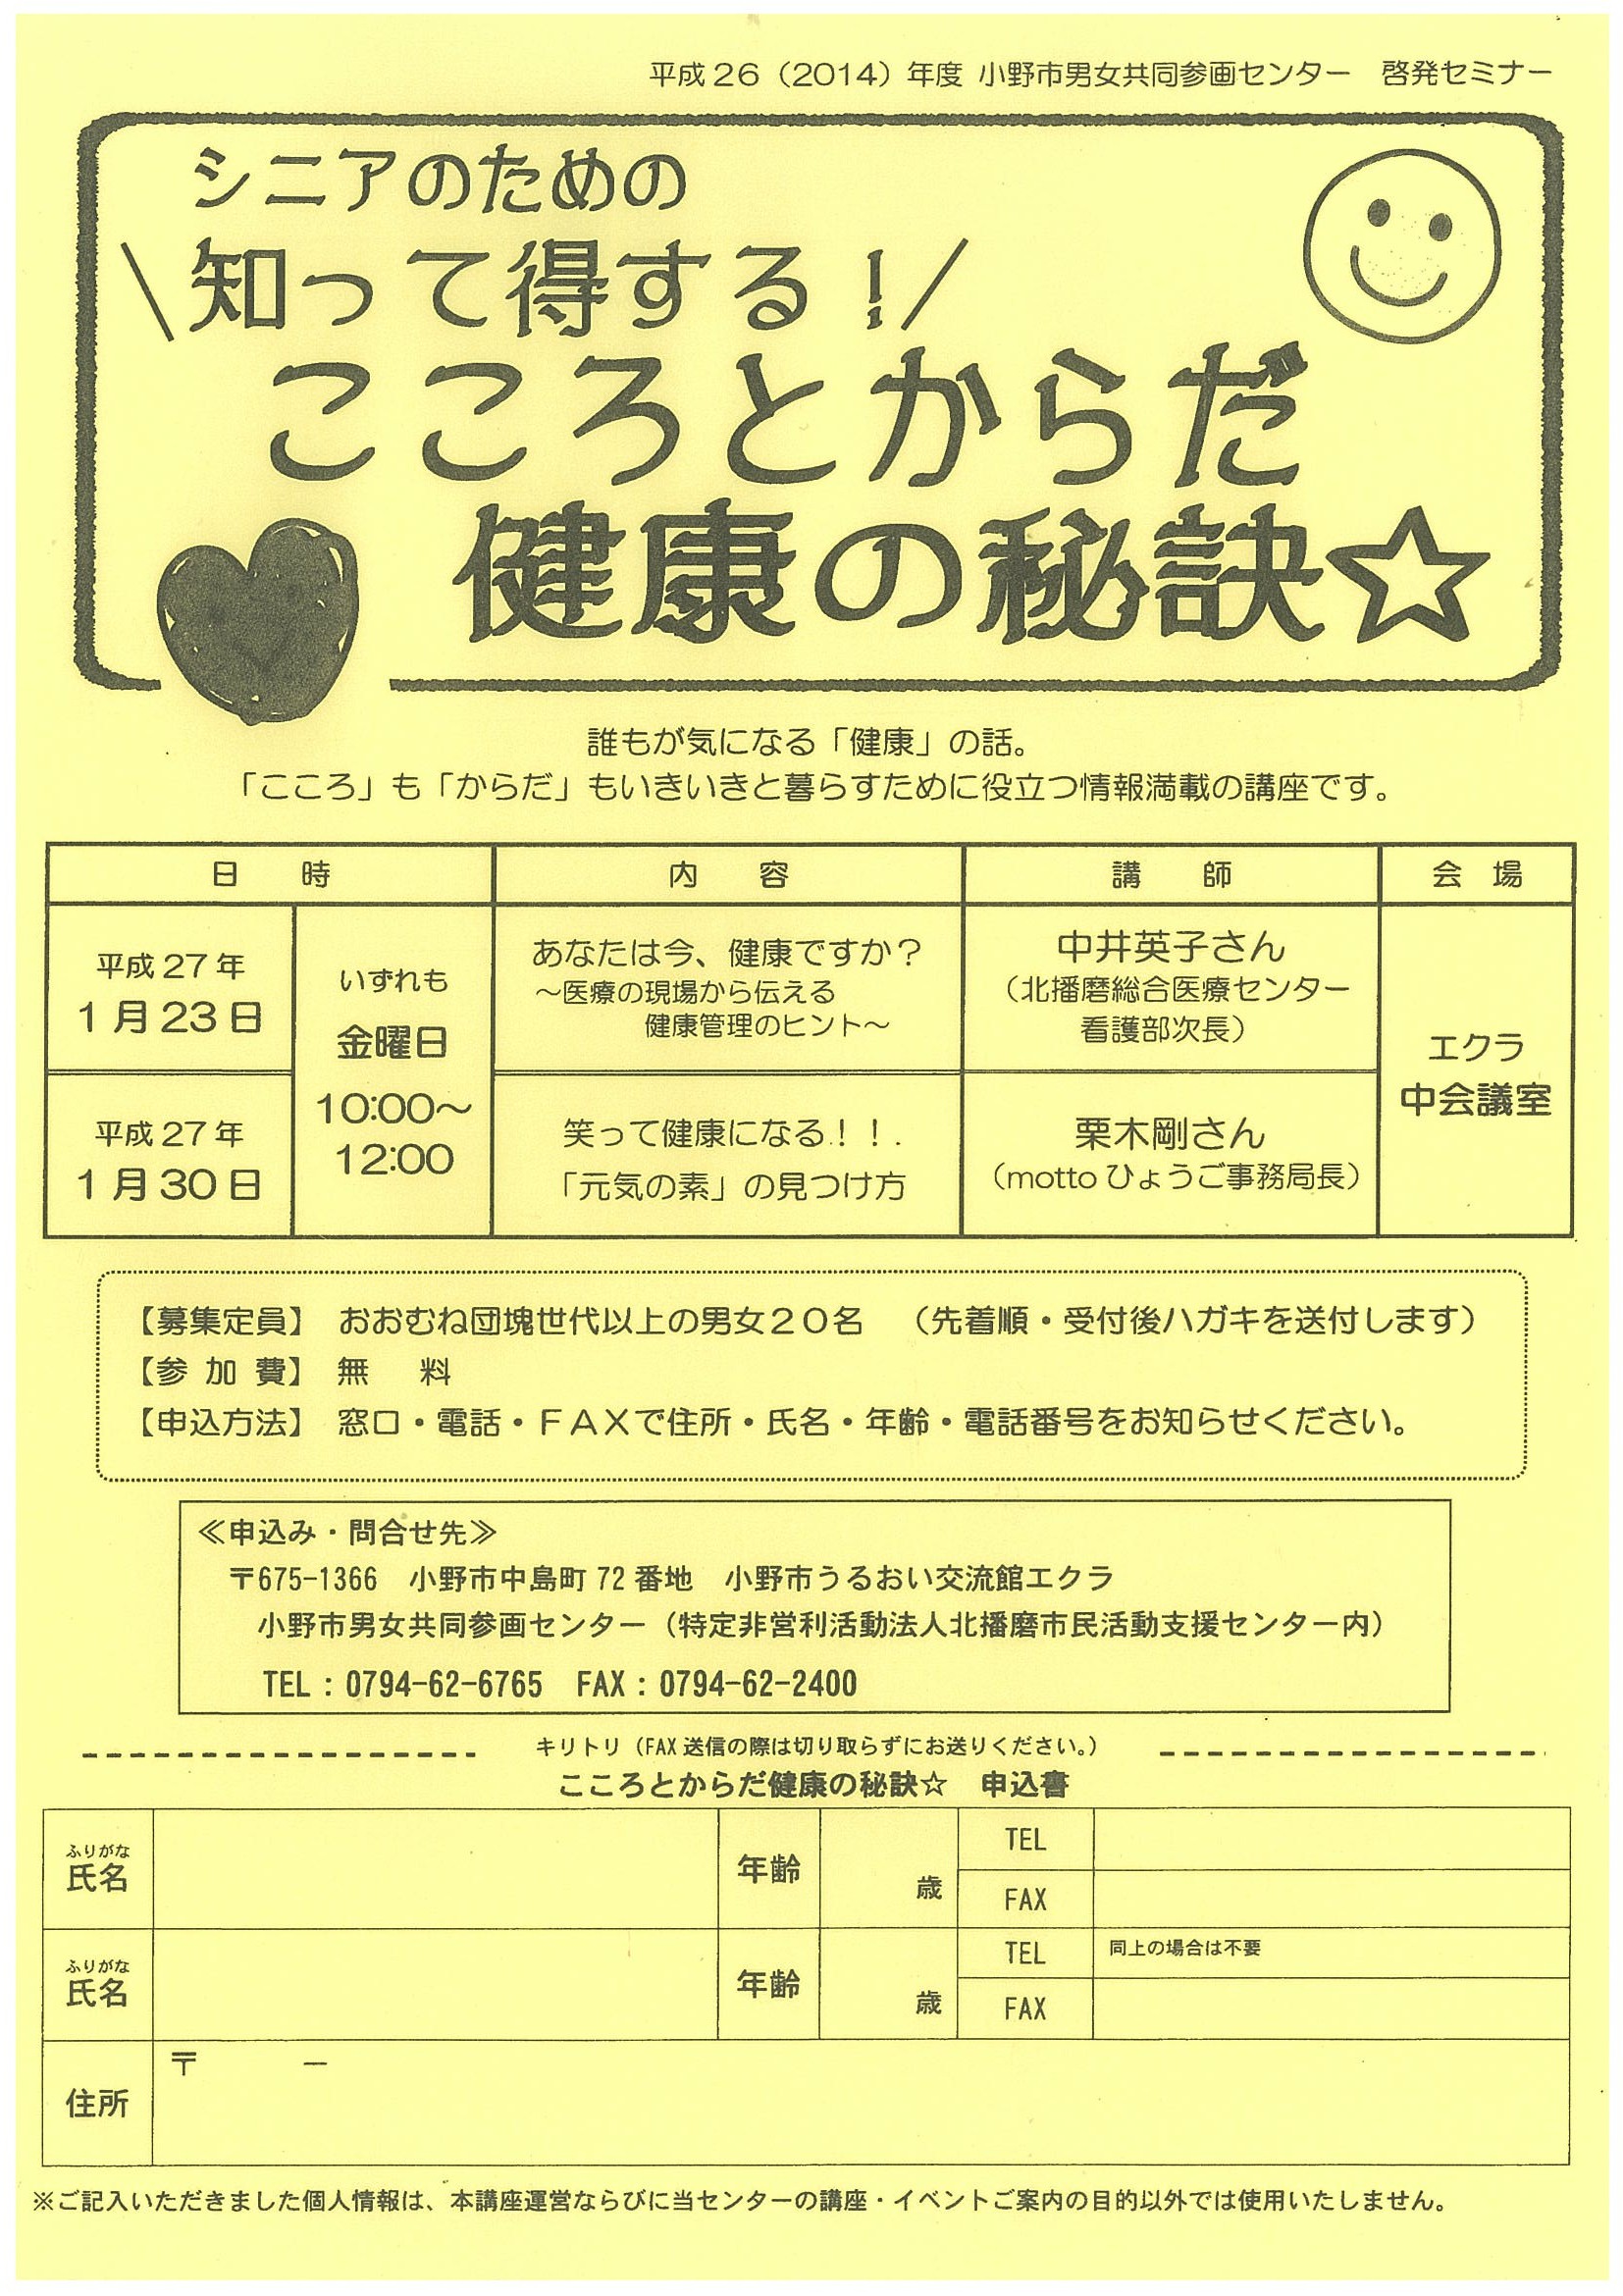 平成26（2014）年度 小野市男女共同参画センター　啓発セミナー
シニアのための
\知って得する！/
こころとからだ
健康の秘訣☆
誰もが気になる「健康」の話。
「こころ」も「からだ」もいきいきと暮らすために役立つ情報満載の講座です。
日　時　内　容　講　師　会　場
平成27年
1月23日
いずれも
金曜日
10:00～
12:00
あなたは今、健康ですか？
～医療の現場から伝える
健康管理のヒント～
中井英子さん
（北播磨総合医療センター
看護部次長）
エクラ
中会議室
平成27年
1月30日
笑って健康になる！！.
「元気の素」の見つけ方
栗木剛さん
（mottoひょうご事務局長）
【募集定員】　おおむね団塊世代以上の男女２０名　（先着順・受付後ハガキを送付します）
【参 加 費】　無　料
【申込方法】　窓口・電話・ＦＡＸで住所・氏名・年齢・電話番号をお知らせください。
≪申込み・問合せ先≫
〒675-1366　小野市中島町72番地　小野市うるおい交流館エクラ
小野市男女共同参画センター（特定非営利活動法人北播磨市民活動支援センター内）
TEL：0794-62-6765　FAX：0794-62-2400
キリトリ（FAX送信の際は切り取らずにお送りください。）
こころとからだ健康の秘訣☆　申込書
ふりがな
氏名
年齢
歳
TEL
FAX
ふりがな
氏名
年齢
歳
TEL
同上の場合は不要
FAX
住所
〒　　－
※ご記入いただきました個人情報は、本講座運営ならびに当センターの講座・イベントご案内の目的以外では使用いたしません。